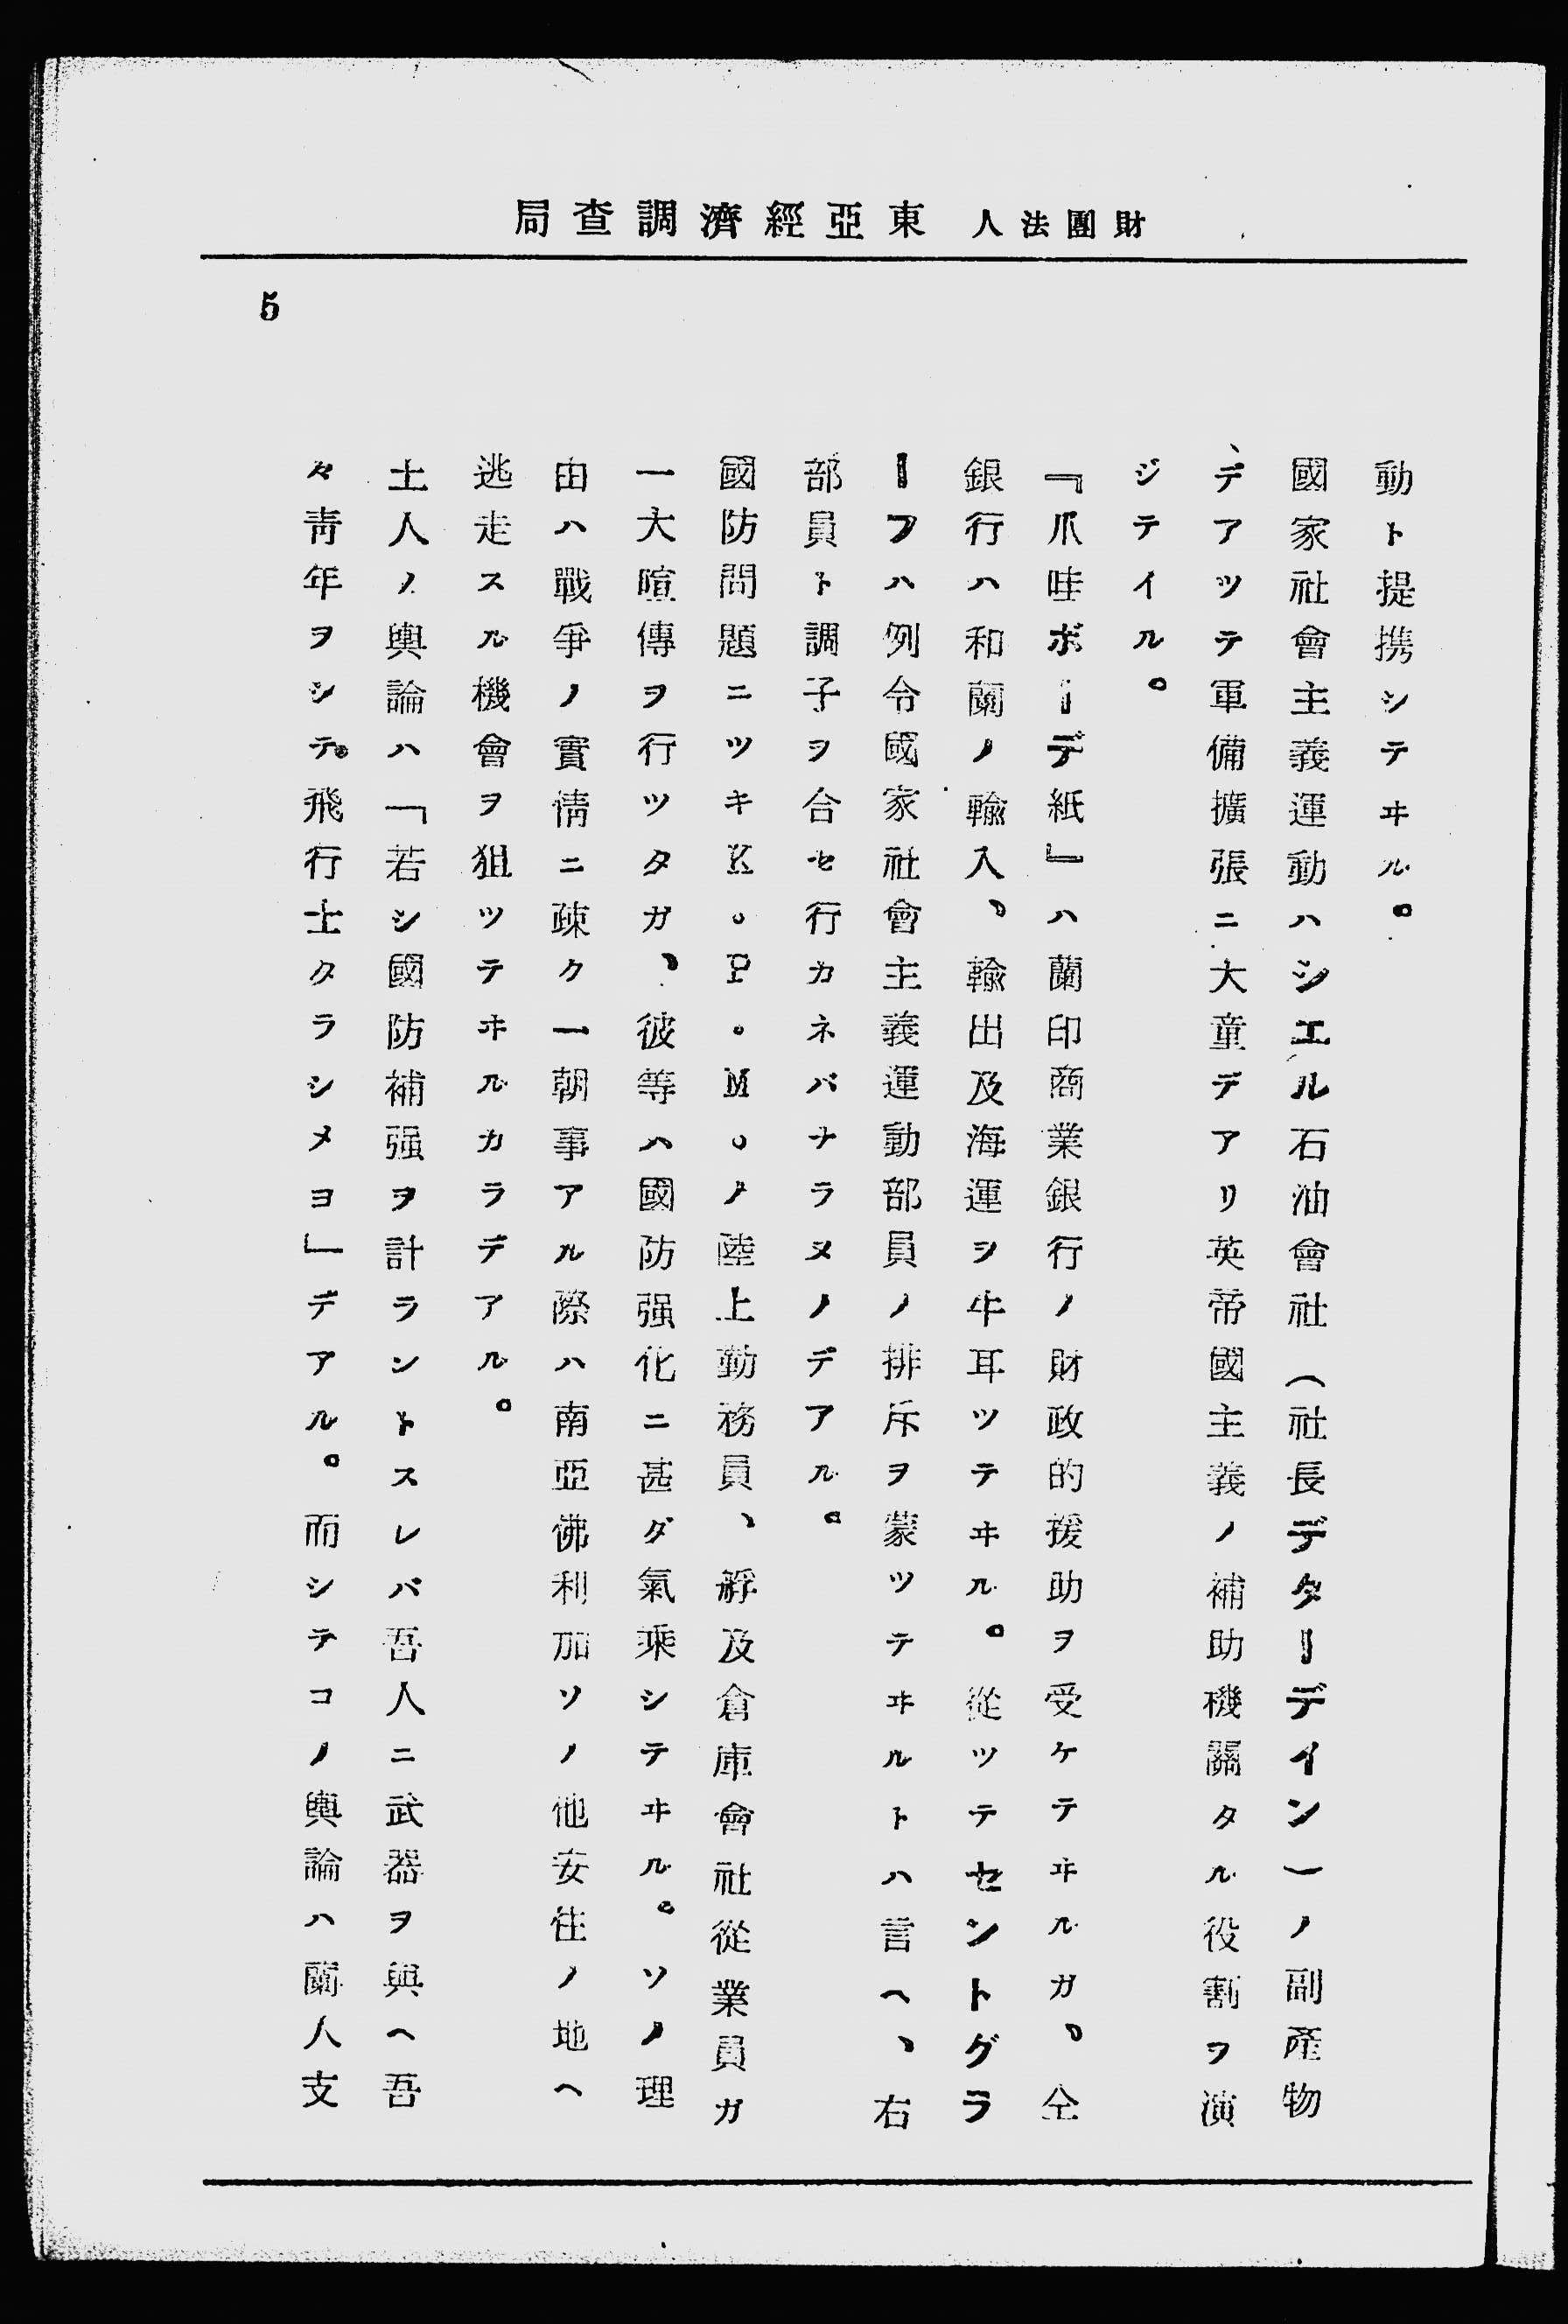 財團法人 東亞經濟調查局
5
動ト提携シテヰル。
國家社會主義運動ハシエル石油會社(社長デターデイン)ノ副產物
、デアツテ軍備擴張ニ大童デアリ英帝國主義ノ補助機關タル役割ヲ演
ジテイル。
『爪哇ボーデ紙』ハ蘭印商業銀行ノ財政的援助ヲ受ケテヰルガ、仝
銀行ハ和蘭ノ輸入、輸出及海運ヲ牛耳ツテヰル。從ツテセントグラ
ーフハ例令國家社會主義運動部員ノ排斥ヲ蒙ツテヰルトハ言ヘ、右
部員ト調子ヲ合セ行カネバナラヌノデアル。
國防問題ニツキK。P。M。ノ陸上勤務員、艀及倉庫會社從業員ガ
一大喧傳ヲ行ツタガ、彼等ハ國防强化ニ甚ダ氣乘シテヰル。ソノ理
由ハ戰爭ノ實情ニ疎ク一朝事アル際ハ南亞佛利加ソノ他安住ノ地ヘ
逃走スル機會ヲ狙ツテヰルカラデアル。
土人ノ輿論ハ「若シ國防補强ヲ計ラントスレバ吾人ニ武器ヲ與ヘ吾
々靑年ヲシテ。飛行士タラシメヨ」デアル。而シテコノ輿論ハ蘭人支